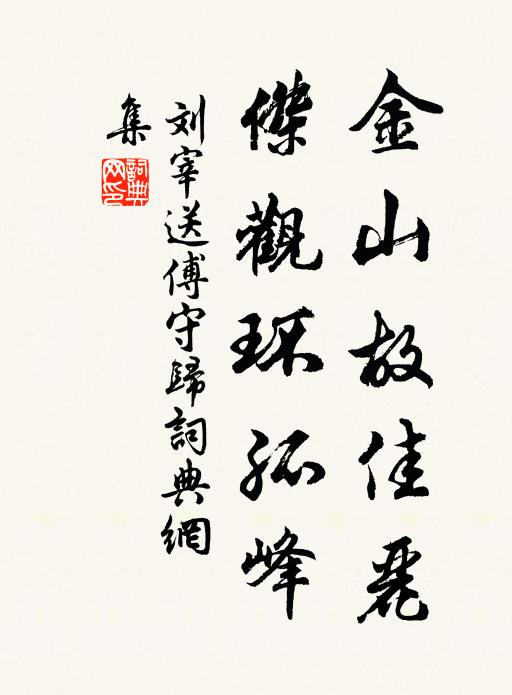 金山故佳麗
傑觀环孤峰
刘宰送傅守歸詞典網
集
詞典網印